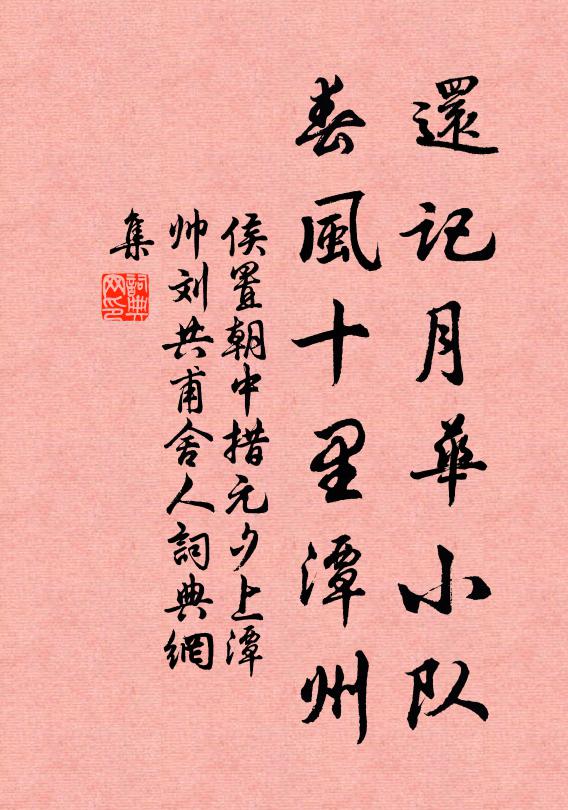 還記月華小队
春風十里潭州
侯置朝中措元夕上潭
帅刘共甫舍人詞典網
集
詞典网印